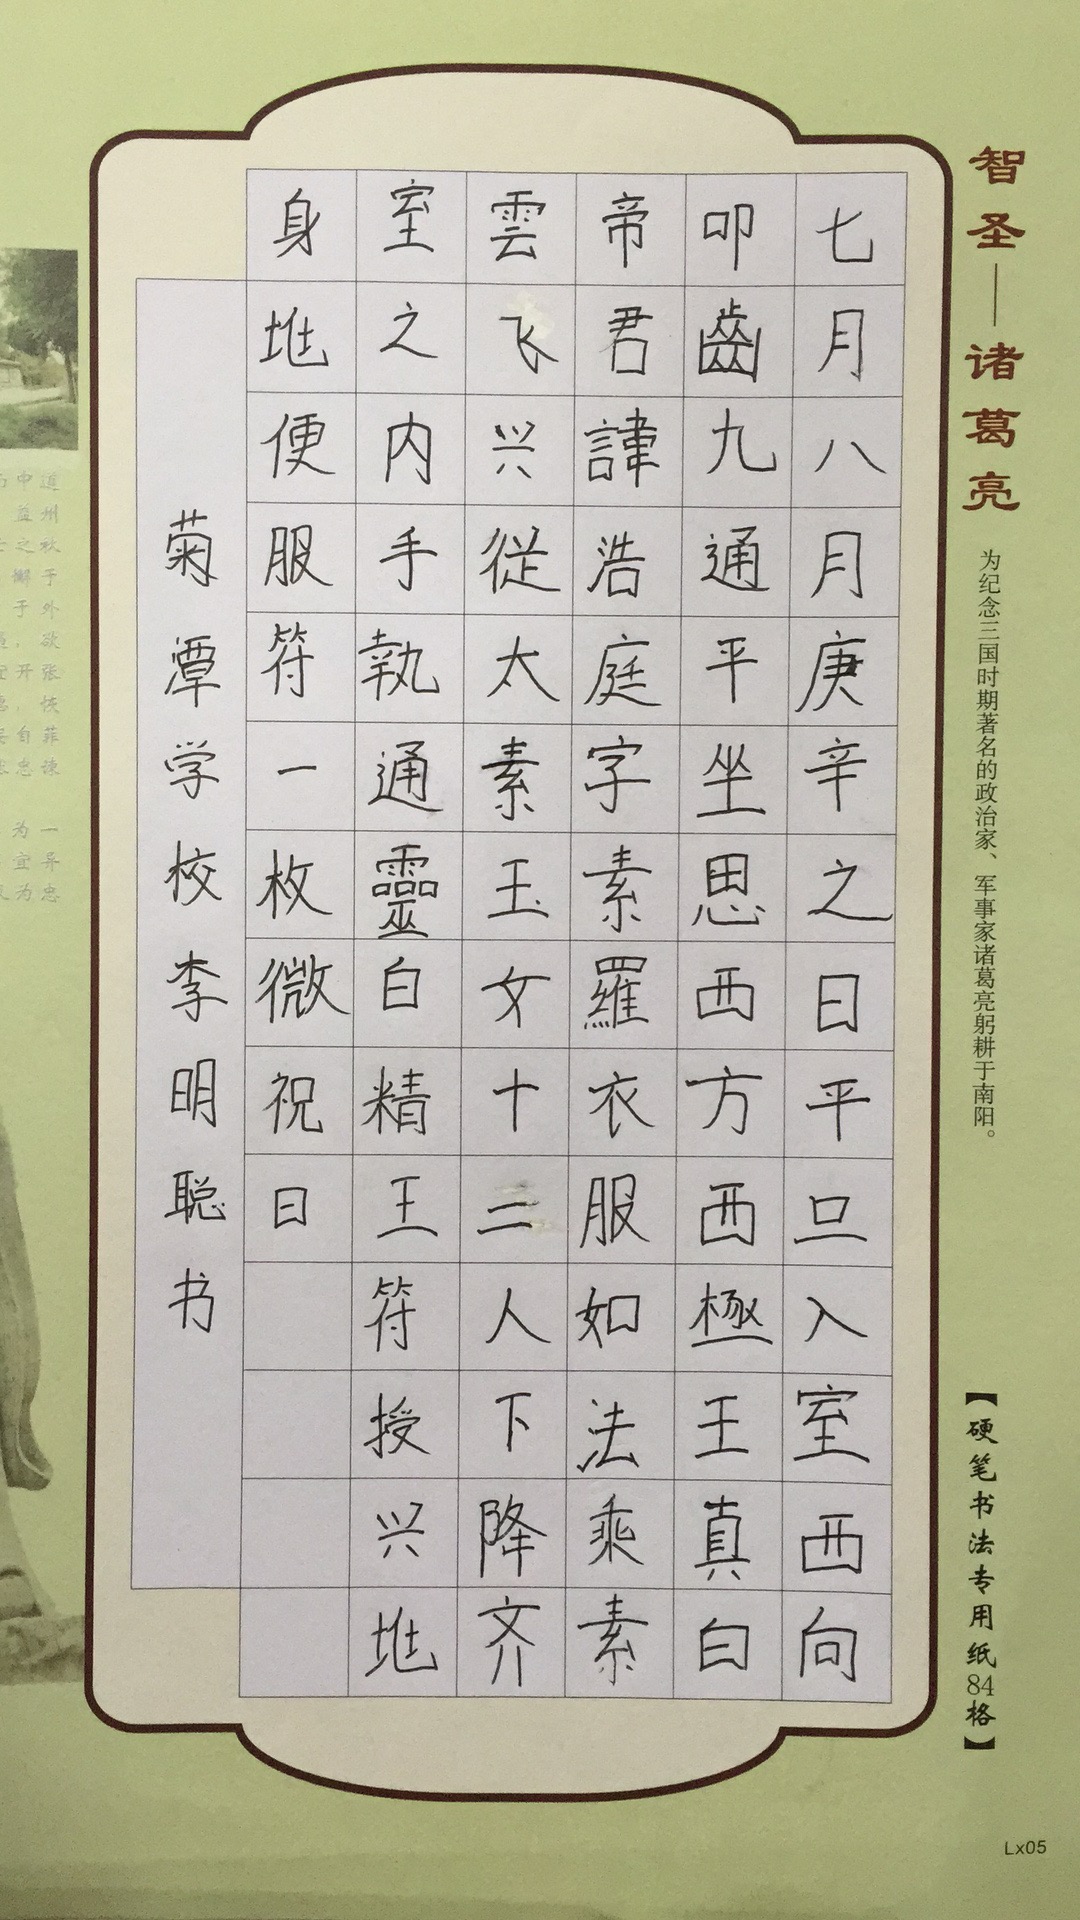 智圣——诸葛亮
为纪念三国时期著名的政治家、军事家诸葛亮躬耕于南阳。
【硬笔书法专用纸84格】
七月八月庚辛之日平旦入室西向
叩齒九通平坐思西方西極王真白
帝君諱浩庭字素羅衣服如法乘素
雲飞兴從太素玉女十二人下降齐
室之内手執通靈白精王符授兴地
身地便服符一枚微祝曰
菊潭学校李明聪书
Lx05